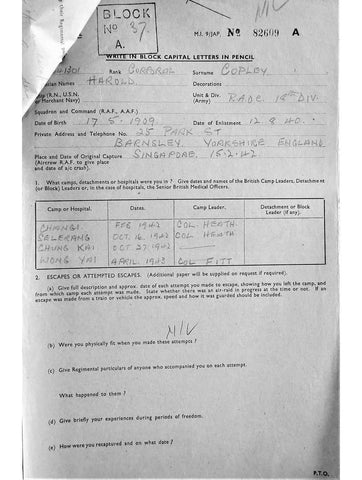 BLOCK
Nº 37.
A.
M.I. 9/JAP. Nº 82609 A
WRITE IN BLOCK CAPITAL LETTERS IN PENCIL
Rank CORPORAL Surname COPLEY
Names HAROLD. Decorations
(R.N., U.S.N. or Merchant Navy) Unit & Div. (Army) 18TH DIV.
Squadron and Command (R.A.F., A.A.F.)
Date of Birth 17. 5. 1909. Date of Enlistment 12. 9. 40.
Private Address and Telephone No. 25 PARK ST
BARNSLEY YORKSHIRE ENGLAND
Place and Date of Original Capture SINGAPORE. 15.2.42
(Aircrew R.A.F. to give place
and date of a/c crash).
1. What camps, detachments or hospitals were you in ? Give dates and names of the British Camp Leaders, Detachment
(or Block) Leaders or, in the case of hospitals, the Senior British Medical Officers.
Camp or Hospital. Dates. Camp Leader. Detachment or Block Leader (if any).
CHANGI. FEB 1942 COL. HEATH.
SELERANG OCT. 16. 1942 COL HEATH
CHUNG KAI OCT 27. 1942
WONG YAI APRIL. 1943 COL FITT
2. ESCAPES OR ATTEMPTED ESCAPES. (Additional paper will be supplied on request if required).
(a) Give full description and approx. date of each attempt you made to escape, showing how you left the camp, and
from which camp each attempt was made. State whether there was an air-raid in progress at the time or not. If an
escape was made from a train or vehicle the approx. speed and how it was guarded should be included.
(b) Were you physically fit when you made these attempts ?
(c) Give Regimental particulars of anyone who accompanied you on each attempt.
What happened to them ?
(d) Give briefly your experiences during periods of freedom.
(e) How were you recaptured and on what date ?
P.T.O.